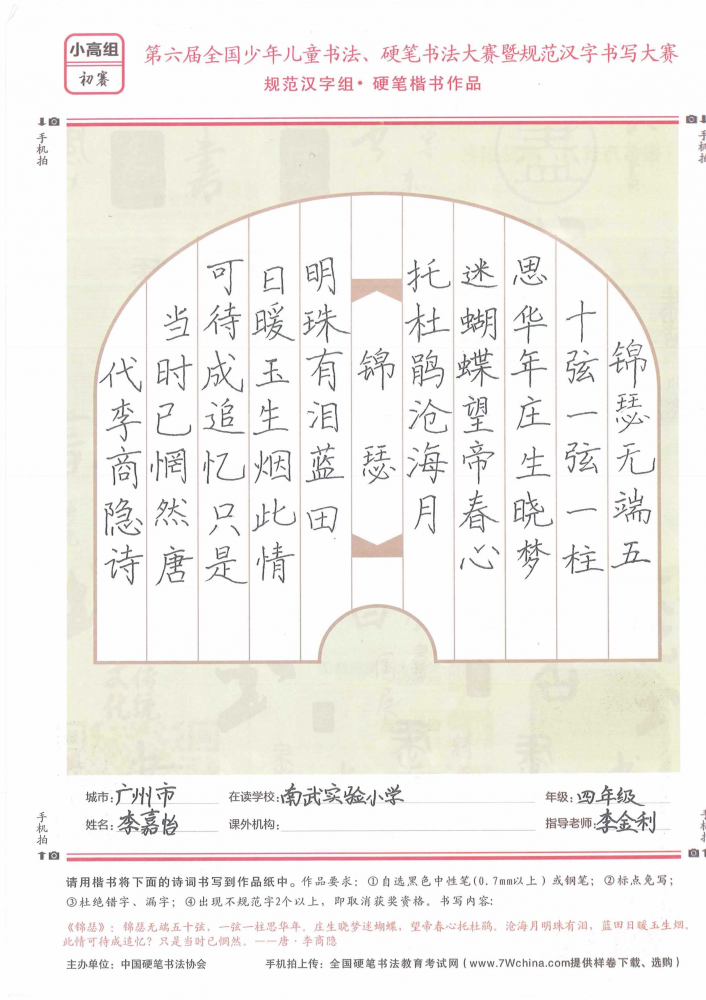 小高组
初赛
第六届全国少年儿童书法、硬笔书法大赛暨规范汉字书写大赛
规范汉字组·硬笔楷书作品
手机拍
手机拍
锦瑟无端五
十弦一弦一柱
思华年庄生晓梦
迷蝴蝶望帝春心
托杜鹃沧海月
锦瑟
明珠有泪蓝田
日暖玉生烟此情
可待成追忆只是
当时已惘然唐
代李商隐诗
城市:广州市
在读学校:南武实验小学
年级:四年级
姓名:李嘉怡
课外机构:
指导老师:李金利
手机拍
手机拍
请用楷书将下面的诗词书写到作品纸中。作品要求：①自选黑色中性笔(0.7mm以上）或钢笔；②标点免写；
③杜绝错字、漏字；④出现不规范字2个以上，即取消获奖资格。书写内容:
《锦瑟》：锦瑟无端五十弦，一弦一柱思华年。庄生晓梦迷蝴蝶，望帝春心托杜鹃。沧海月明珠有泪，蓝田日暖玉生烟。
此情可待成追忆？只是当时已惘然。——唐·李商隐
主办单位：中国硬笔书法协会
手机拍上传：全国硬笔书法教育考试网（www.7Wchina.com提供样卷下载、选购）